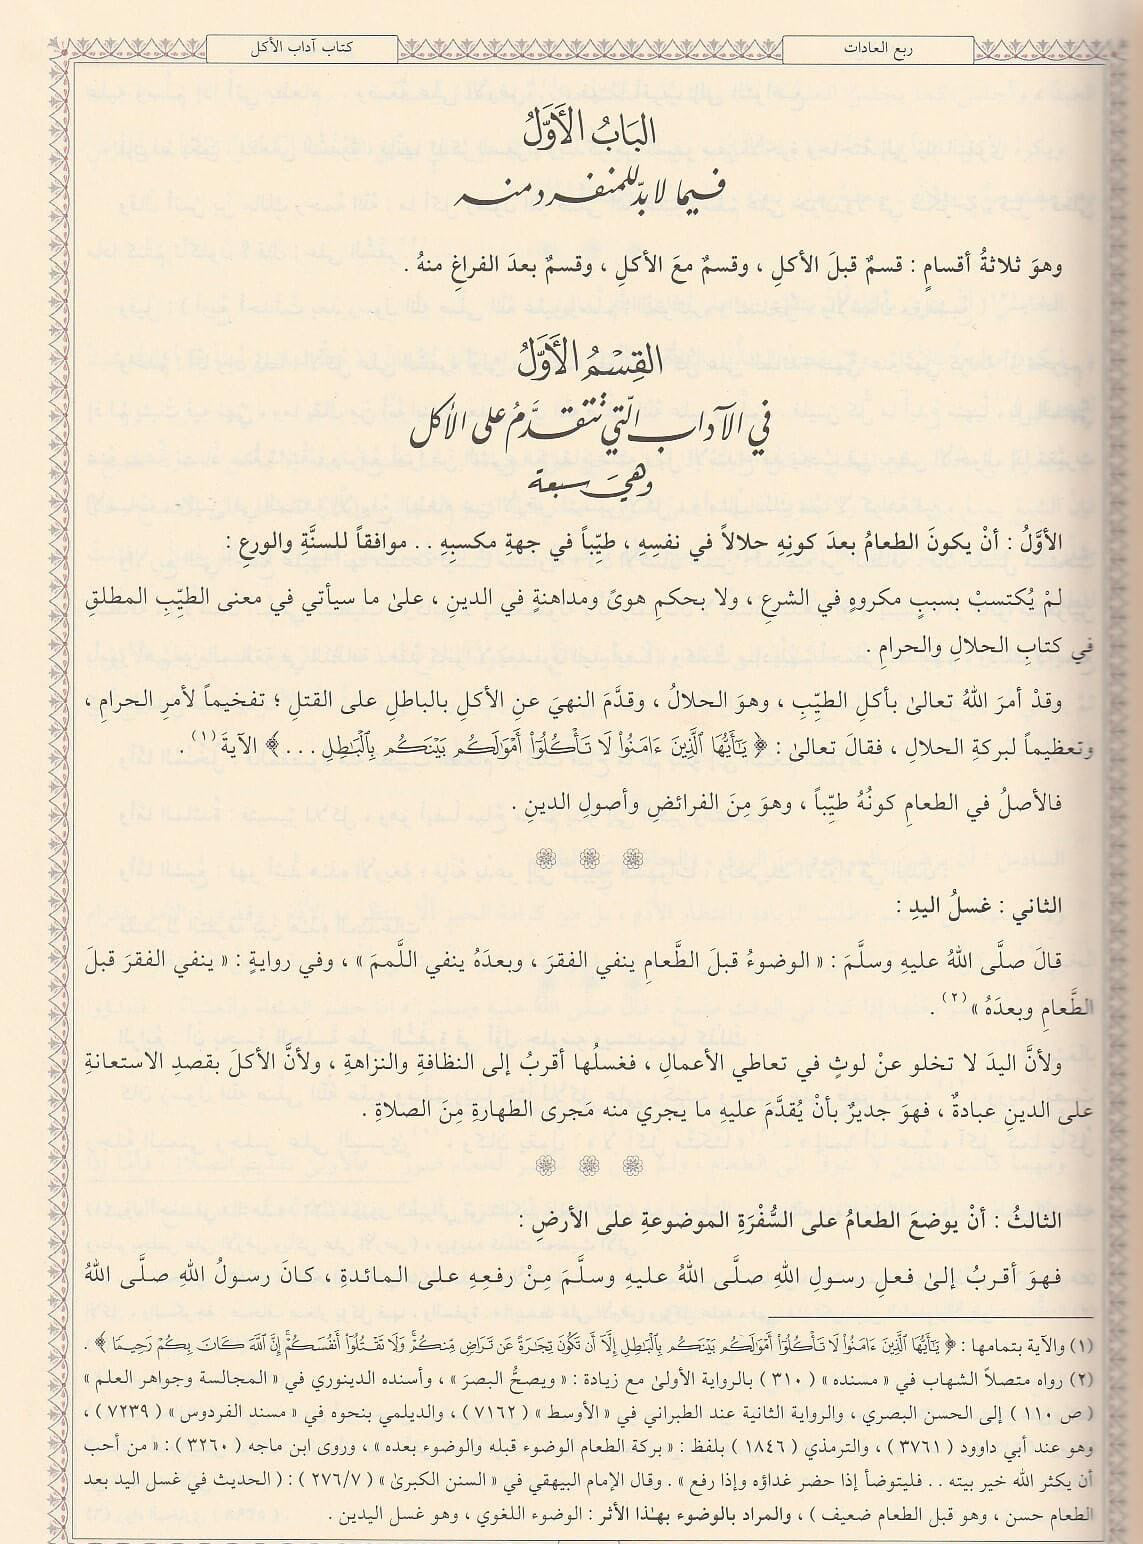 ربع العادات
كتاب آداب الأكل
البَابُ الأَوَّلُ
فيما لا بدّ للمنفرد منه
وهوَ ثلاثةُ أقسامٍ : قسمٌ قبلَ الأكلِ ، وقسمٌ معَ الأكلِ ، وقسمٌ بعدَ الفراغِ منهُ .
القِسْمُ الأَوَّلُ
في الآداب الّتي تتقدَّمُ على الأكل
وهيَ سبعة
الأوَّلُ : أنْ يكونَ الطعامُ بعدَ كونِهِ حلالاً في نفسِهِ ، طيِّباً في جهةِ مكسبِهِ . . موافقاً للسنَّةِ والورعِ :
لمْ يُكتسبْ بسببٍ مكروهٍ في الشرعِ ، ولا بحكمِ هوىً ومداهنةٍ في الدينِ ، علىٰ ما سيأتي في معنى الطيِّبِ المطلقِ
في كتابِ الحلالِ والحرامِ .
وقدْ أمرَ اللهُ تعالىٰ بأكلِ الطيِّبِ ، وهوَ الحلالُ ، وقدَّمَ النهيَ عنِ الأكلِ بالباطلِ على القتلِ ؛ تفخيماً لأمرِ الحرامِ ،
وتعظيماً لبركةِ الحلالِ ، فقالَ تعالىٰ : ﴿ يَٰٓأَيُّهَا ٱلَّذِينَ ءَامَنُوا۟ لَا تَأْكُلُوٓا۟ أَمْوَٰلَكُم بَيْنَكُم بِٱلْبَٰطِلِ . . . ﴾ الآيةَ (١) .
فالأصلُ في الطعامِ كونُهُ طيِّباً ، وهوَ مِنَ الفرائضِ وأصولِ الدينِ .
الثاني : غسلُ اليدِ :
قالَ صلَّى اللهُ عليهِ وسلَّمَ : « الوضوءُ قبلَ الطَّعامِ ينفي الفقرَ ، وبعدَهُ ينفي اللَّممَ » ، وفي روايةٍ : « ينفي الفقرَ قبلَ
الطَّعامِ وبعدَهُ » (٢) .
ولأنَّ اليدَ لا تخلو عنْ لوثٍ في تعاطي الأعمالِ ، فغسلُها أقربُ إلى النظافةِ والنزاهةِ ، ولأنَّ الأكلَ بقصدِ الاستعانةِ
على الدينِ عبادةٌ ، فهوَ جديرٌ بأنْ يُقدَّمَ عليهِ ما يجري منه مَجرى الطهارةِ مِنَ الصلاةِ .
الثالثُ : أنْ يوضعَ الطعامُ على السُّفْرَةِ الموضوعةِ على الأرضِ :
فهوَ أقربُ إلىٰ فعلِ رسولِ اللهِ صلَّى اللهُ عليهِ وسلَّمَ مِنْ رفعِهِ على المائدةِ ، كانَ رسولُ اللهِ صلَّى اللهُ
(١) والآية بتمامها : ﴿ يَٰٓأَيُّهَا ٱلَّذِينَ ءَامَنُوا۟ لَا تَأْكُلُوٓا۟ أَمْوَٰلَكُم بَيْنَكُم بِٱلْبَٰطِلِ إِلَّآ أَن تَكُونَ تِجَٰرَةً عَن تَرَاضٍ مِّنكُمْ ۚ وَلَا تَقْتُلُوٓا۟ أَنفُسَكُمْ ۚ إِنَّ ٱللَّهَ كَانَ بِكُمْ رَحِيمًا ﴾ .
(٢) رواه متصلاً الشهاب في « مسنده » ( ٣١٠ ) بالرواية الأولىٰ مع زيادة : « ويصحُّ البصرَ » ، وأسنده الدينوري في « المجالسة وجواهر العلم »
( ص ١١٠ ) إلى الحسن البصري ، والرواية الثانية عند الطبراني في « الأوسط » ( ٧١٦٢ ) ، والديلمي بنحوه في « مسند الفردوس » ( ٧٢٣٩ ) ،
وهو عند أبي داوود ( ٣٧٦١ ) ، والترمذي ( ١٨٤٦ ) بلفظ : « بركة الطعام الوضوء قبله والوضوء بعده » ، وروى ابن ماجه ( ٣٢٦٠ ) : « من أحب
أن يكثر الله خير بيته . . فليتوضأ إذا حضر غداؤه وإذا رفع » . وقال الإمام البيهقي في « السنن الكبرىٰ » ( ٢٧٦/٧ ) : ( الحديث في غسل اليد بعد
الطعام حسن ، وهو قبل الطعام ضعيف ) ، والمراد بالوضوء بهـٰذا الأثر : الوضوء اللغوي ، وهو غسل اليدين .